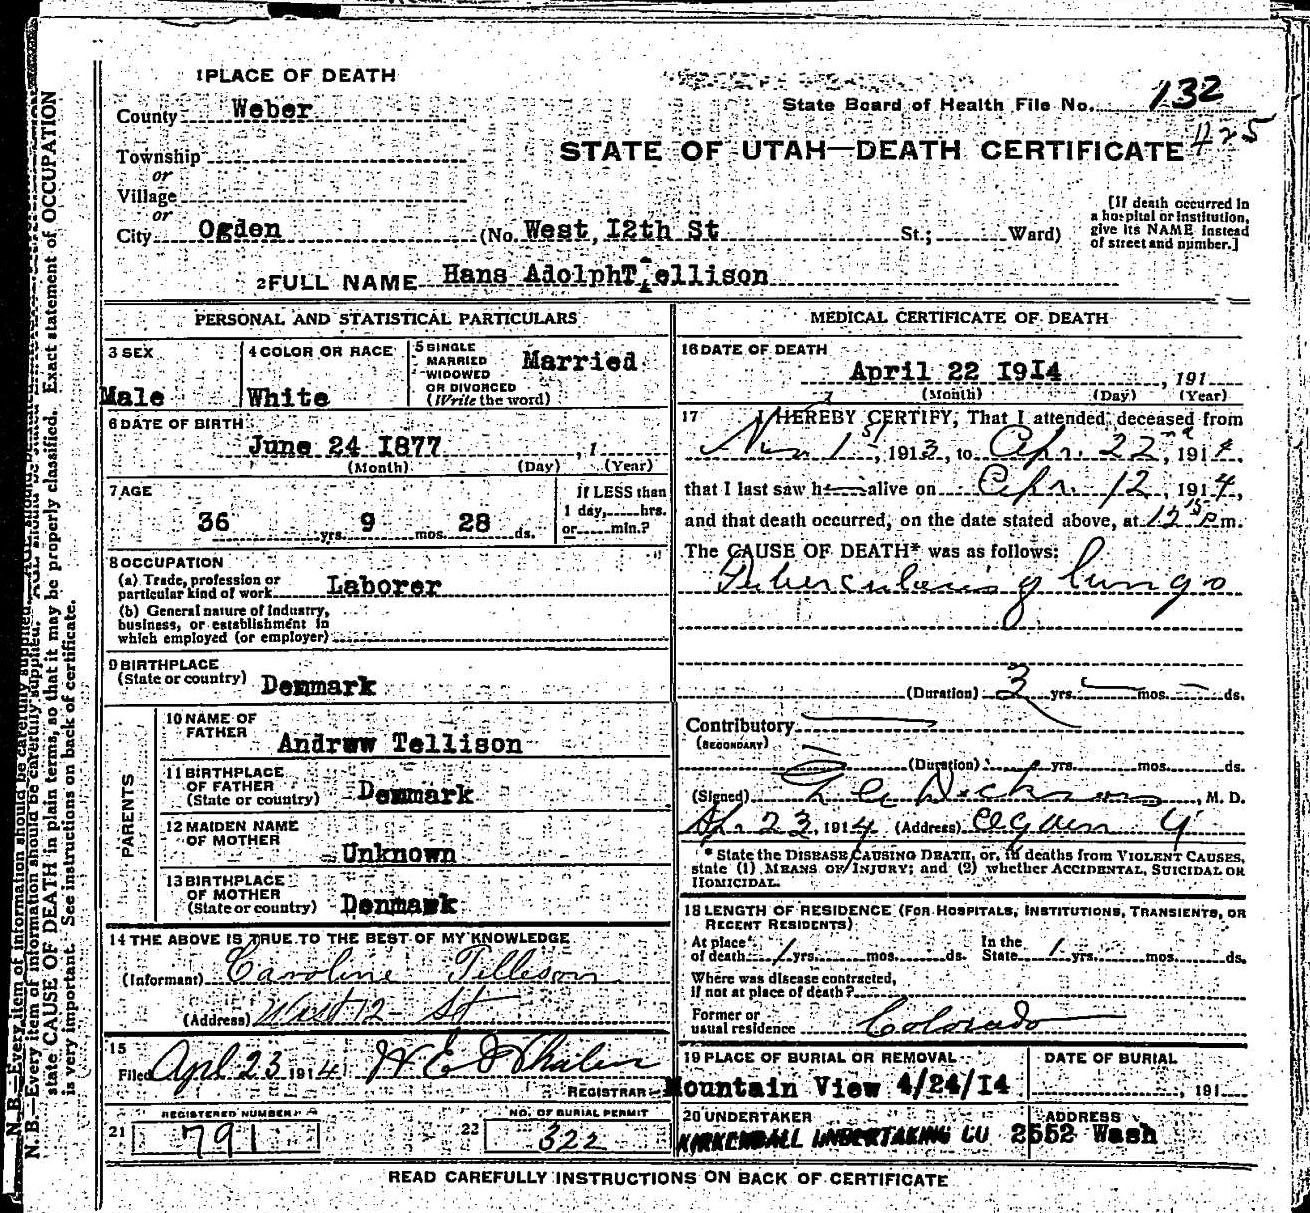 1 PLACE OF DEATH
State Board of Health File No. 132
County Weber
425
STATE OF UTAH—DEATH CERTIFICATE
Township
or
Village
or
City Ogden (No. West, I2th St St.; Ward)
[If death occurred in
a hospital or institution,
give its NAME instead
of street and number.]
2 FULL NAME Hans Adolph Tellison
PERSONAL AND STATISTICAL PARTICULARS
3 SEX
Male
4 COLOR OR RACE
White
5 SINGLE
MARRIED
WIDOWED
OR DIVORCED
(Write the word)
Married
6 DATE OF BIRTH
June 24 I877 , 1
(Month) (Day) (Year)
7 AGE
36 yrs. 9 mos. 28 ds.
If LESS than
1 day, hrs.
or min.?
8 OCCUPATION
(a) Trade, profession or
particular kind of work Laborer
(b) General nature of Industry,
business, or establishment in
which employed (or employer)
9 BIRTHPLACE
(State or country) Denmark
PARENTS
10 NAME OF
FATHER
Andrww Tellison
11 BIRTHPLACE
OF FATHER
(State or country) Denmark
12 MAIDEN NAME
OF MOTHER
Unknown
13 BIRTHPLACE
OF MOTHER
(State or country) Denmark
14 THE ABOVE IS TRUE TO THE BEST OF MY KNOWLEDGE
(Informant) Caroline Tillison
(Address) West 12 St
15
Filed Apl 23 1914 W E Whalen
REGISTRAR
21 REGISTERED NUMBER
791
22 NO. OF BURIAL PERMIT
322
MEDICAL CERTIFICATE OF DEATH
16 DATE OF DEATH
April 22 I9I4 , 191
(Month) (Day) (Year)
17 I HEREBY CERTIFY, That I attended, deceased from
Nov 1st, 1913, to Apr. 22nd, 1914,
that I last saw h alive on Apr. 12, 1914,
and that death occurred, on the date stated above, at 12 15 P m.
The CAUSE OF DEATH* was as follows:
Tuberculosis of lungs
(Duration) 3 yrs. mos. ds.
Contributory
(SECONDARY)
(Duration) yrs. mos. ds.
(Signed) Dickson, M. D.
Apr. 23, 1914 (Address) Ogden
* State the DISEASE CAUSING DEATH, or, in deaths from VIOLENT CAUSES,
state (1) MEANS OF INJURY; and (2) whether ACCIDENTAL, SUICIDAL OR
HOMICIDAL.
18 LENGTH OF RESIDENCE (FOR HOSPITALS, INSTITUTIONS, TRANSIENTS, OR
RECENT RESIDENTS)
At place of death 1 yrs. mos. ds. In the State 1 yrs. mos. ds.
Where was disease contracted,
if not at place of death?
Former or
usual residence Colorado
19 PLACE OF BURIAL OR REMOVAL
Mountain View 4/24/I4
DATE OF BURIAL
, 191
20 UNDERTAKER
KIRKENDALL UNDERTAKING CO
ADDRESS
2552 Wash
READ CAREFULLY INSTRUCTIONS ON BACK OF CERTIFICATE
N. B.—Every item of information should be carefully supplied. AGE should be
state CAUSE OF DEATH in plain terms, so that it may be properly classified. Exact statement of OCCUPATION
is very important. See instructions on back of certificate.